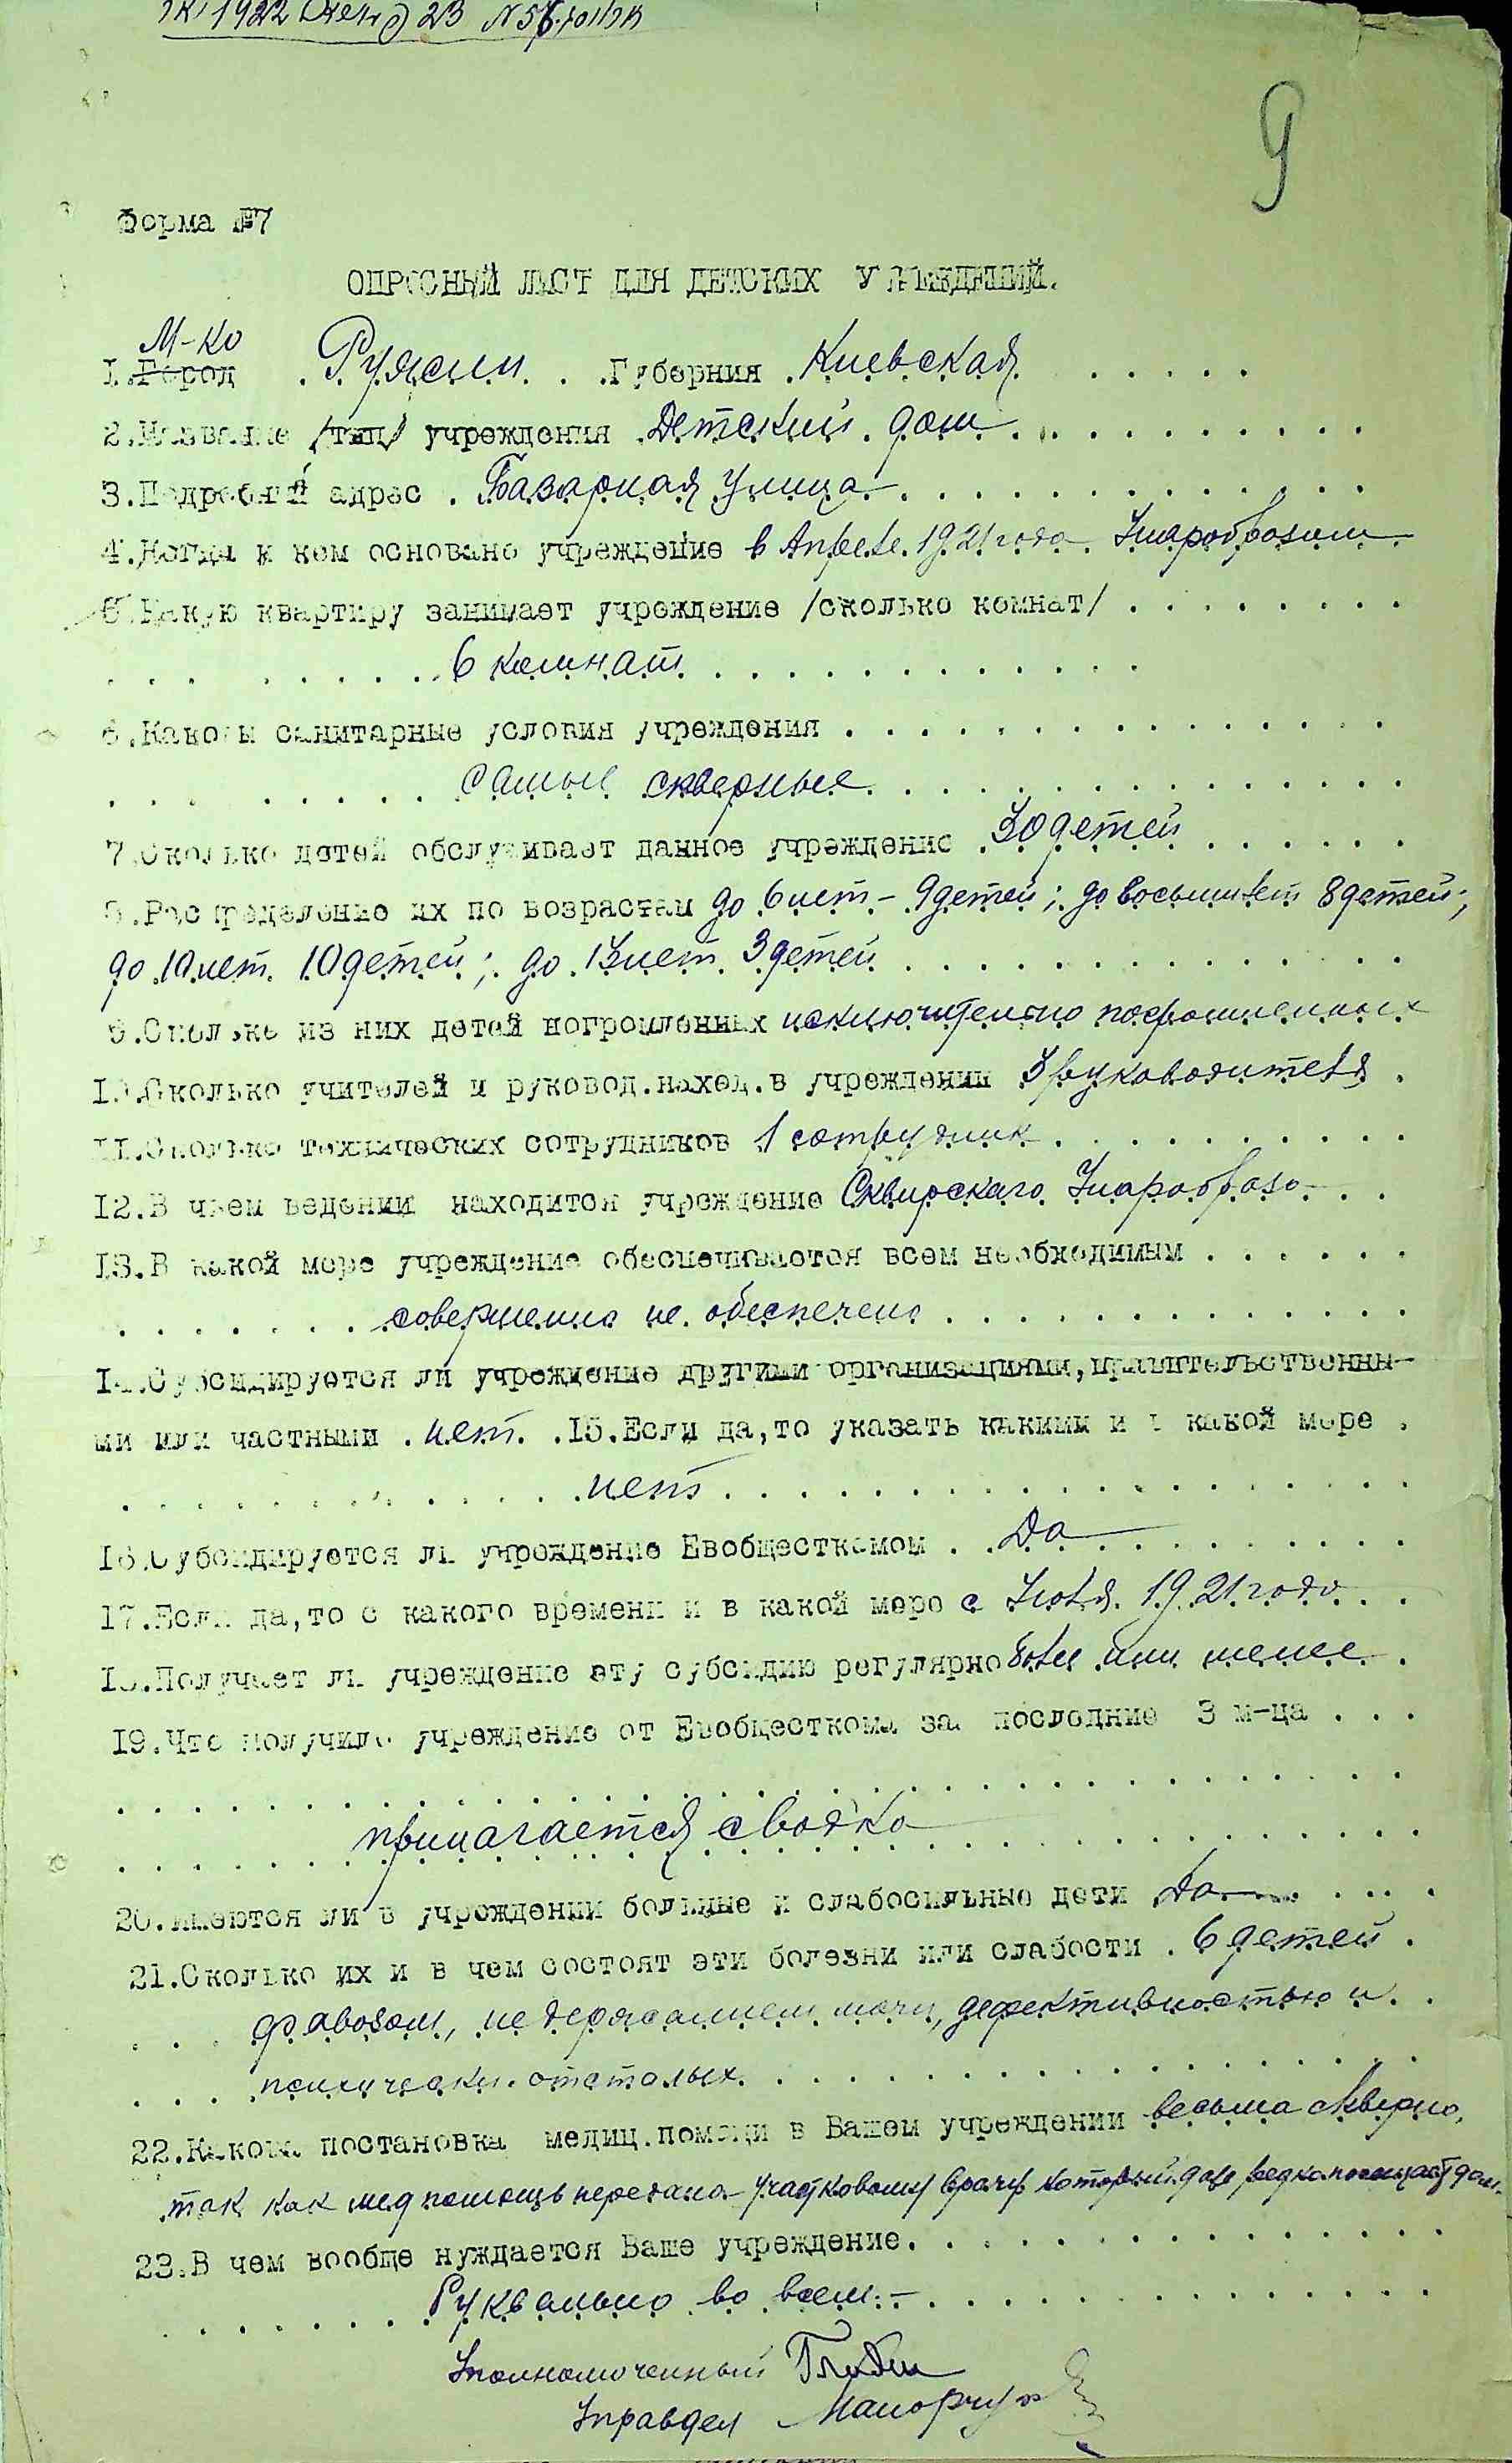 1922
9
Форма №7
ОПРОСНЫЙ ЛИСТ ДЛЯ ДЕТСКИХ УЧРЕЖДЕНИЙ.
М-ко
1.Город . Ружин . . .Губерния .Киевская . . . . .
2.Название /тип/ учреждения .Детский дом . . . . . . . . . .
3.Подробный адрес . Базарная улица . . . . . . . . . . . .
4.Когда и кем основано учреждение в Апреле 1921 года Унаробразом
5.Какую квартиру занимает учреждение /сколько комнат/ . . . . . . . .
. . . . . . . . 6 комнат . . . . . . . . . . . .
6.Каковы санитарные условия учреждения . . . . . . . . . . . . . . .
. . . . . . . . самые скверные . . . . . . . . . . . . . .
7.Сколько детей обслуживает данное учреждение 30 детей . . . . . .
8.Распределение их по возрастам до 6 лет - 9 детей; до восьми лет 8 детей;
до 10 лет 10 детей; до 13 лет 3 детей . . . . . . . . . . . . . .
9.Сколько из них детей погромленных исключительно погромленных
10.Сколько учителей и руковод.наход.в учреждении 3 руководителя .
11.Сколько технических сотрудников 1 сотрудник . . . . . . . . . .
12.В чьем ведении находится учреждение Сквирскаго Унаробраза . .
13.В какой мере учреждение обеспечивается всем необходимым . . . . . .
. . . . . . . совершенно не обеспечено . . . . . . . . . . . . .
14.Субсидируется ли учреждение другими организациями,правительственны-
ми или частными . нет . .15.Если да,то указать какими и в какой мере .
. . . . . . . . . . . . нет . . . . . . . . . . . . . . . . . . .
16.Субсидируется ли учреждение Евобщесткомом . . Да . . . . . . . . .
17.Если да,то с какого времени и в какой мере с Июля 1921 года . .
18.Получает ли учреждение эту субсидию регулярно более или менее .
19.Что получило учреждение от Евобщесткома за последние 3 м-ца . . .
. . . . . . . . . . . . . . . . . . . . . . . . . . . . . . . .
. . . . . . . прилагается сводка . . . . . . . . . . . . . . .
20.Имеются ли в учреждении больные и слабосильные дети Да . . . .
21.Сколько их и в чем состоят эти болезни или слабости . 6 детей .
. . . фавозом, недержанием мочи, дефективностью и . .
. . . психически отсталых . . . . . . . . . . . . . . . . .
22.Какова постановка медиц.помощи в Вашем учреждении весьма скверно,
так как медпомощь передана участковому врачу который редко посещает дом.
23.В чем вообще нуждается Ваше учреждение. . . . . . . . . . . . . . .
. . . . . . . Буквально во всем.- . . . . . . . . . . . . . .
Уполномоченный
Управдел